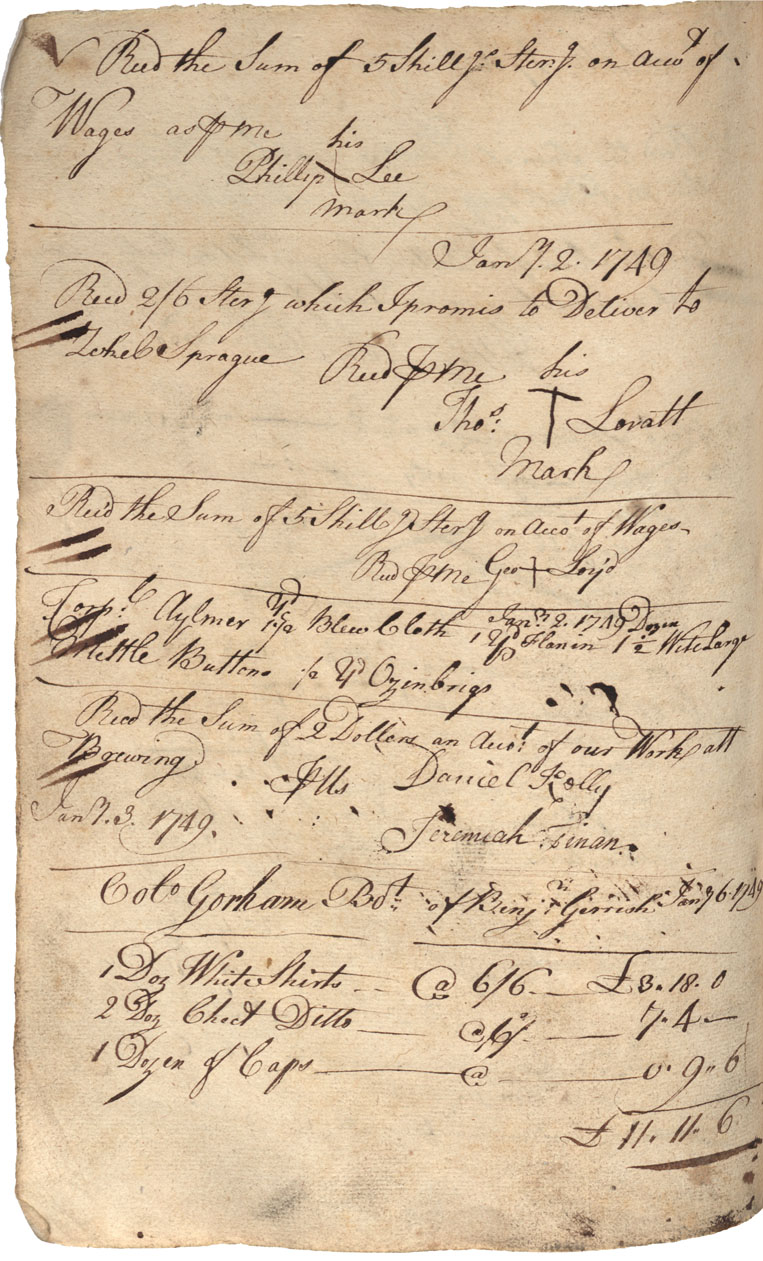 Recd the Sum of 5 Shillgs Sterg. on Accot of
Wages as p me his
Phillip Lee
mark
Jany. 2. 1749
Recd 2/6 Sterg which I promis to Deliver to
Sprague Recd p Me his
Thos: † Lovatt
Mark
Recd the Sum of 5 Shillgs Sterg on Accot of Wages
Recd p Me Geo + Loyd
Jany. 2. 1749
Corpl. Aylmer 1 1/2 Yd Blew Cloth 1 Yd Flanin 1 1/2 Dozen Wite Large
Mettle Buttons 1/2 Yd Ozinbrigs
Recd the Sum of 2 Dollars an Accot: of our Work att
Brewing p Us Daniel Kelly
Jany. 3. 1749. Jeremiah Finan.
Colo Gorham Bot of Benjn: Gerrish Jany 6. 1749
1 Doz White Shirts @ 6/6 £3. 18. 0
2 Doz Chect Ditto @ 6/ 7. 4. —
1 Dozen of Caps @ 0. 9. 6
£ 11. 11. 6